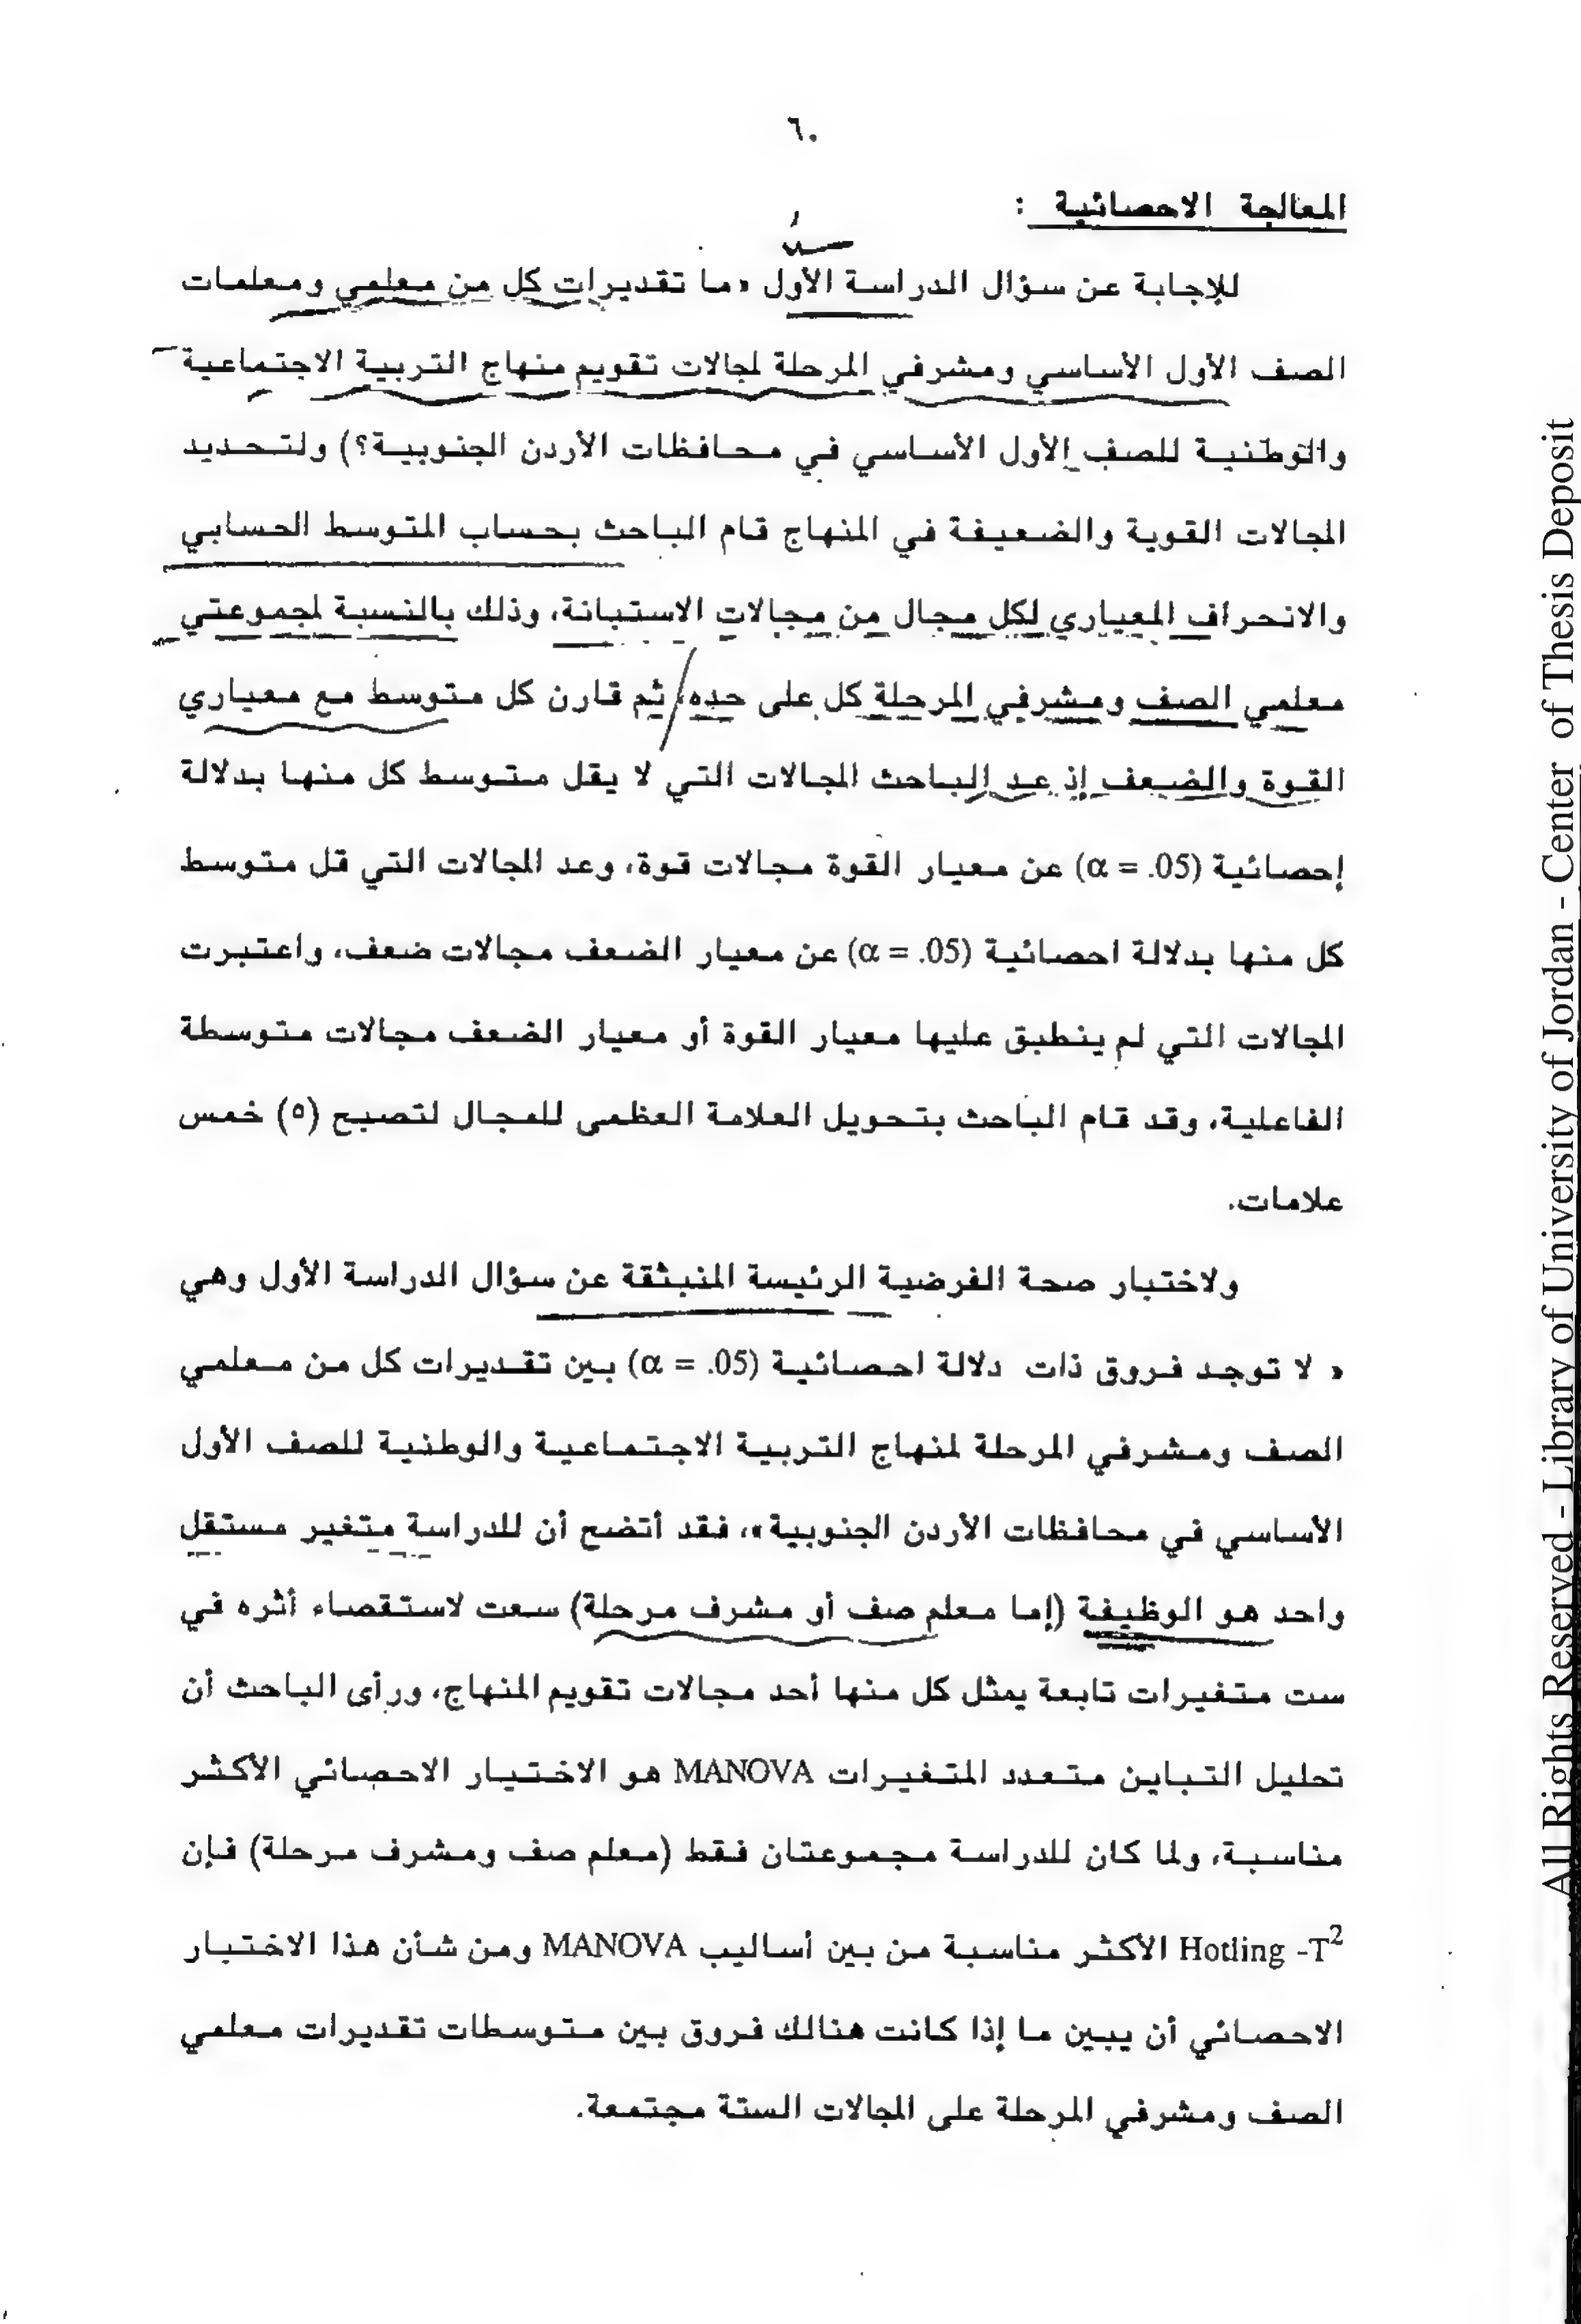 ٦٠
المعالجة الاحصائية :
للإجابة عن سؤال الدراسة الأول «ما تقديرات كل من معلمي ومعلمات
الصف الأول الأساسي ومشرفي المرحلة لمجالات تقويم منهاج التربية الاجتماعية
والوطنية للصف الأول الأساسي في محافظات الأردن الجنوبية؟) ولتحديد
المجالات القوية والضعيفة في المنهاج قام الباحث بحساب المتوسط الحسابي
والانحراف المعياري لكل مجال من مجالات الاستبانة، وذلك بالنسبة لمجموعتي
معلمي الصف ومشرفي المرحلة كل على حده، ثم قارن كل متوسط مع معياري
القوة والضعف إذ عد الباحث المجالات التي لا يقل متوسط كل منها بدلالة
إحصائية (α = .05) عن معيار القوة مجالات قوة، وعد المجالات التي قل متوسط
كل منها بدلالة احصائية (α = .05) عن معيار الضعف مجالات ضعف، واعتبرت
المجالات التي لم ينطبق عليها معيار القوة أو معيار الضعف مجالات متوسطة
الفاعلية، وقد قام الباحث بتحويل العلامة العظمى للمجال لتصبح (٥) خمس
علامات.
ولاختبار صحة الفرضية الرئيسة المنبثقة عن سؤال الدراسة الأول وهي
« لا توجد فروق ذات دلالة احصائية (α = .05) بين تقديرات كل من معلمي
الصف ومشرفي المرحلة لمنهاج التربية الاجتماعية والوطنية للصف الأول
الأساسي في محافظات الأردن الجنوبية»، فقد أتضح أن للدراسة متغير مستقل
واحد هو الوظيفة (إما معلم صف أو مشرف مرحلة) سعت لاستقصاء أثره في
ست متغيرات تابعة يمثل كل منها أحد مجالات تقويم المنهاج، ورأى الباحث أن
تحليل التباين متعدد المتغيرات MANOVA هو الاختيار الاحصائي الأكثر
مناسبة، ولما كان للدراسة مجموعتان فقط (معلم صف ومشرف مرحلة) فإن
Hotling -T² الأكثر مناسبة من بين أساليب MANOVA ومن شأن هذا الاختبار
الاحصائي أن يبين ما إذا كانت هنالك فروق بين متوسطات تقديرات معلمي
الصف ومشرفي المرحلة على المجالات الستة مجتمعة.
All Rights Reserved - Library of University of Jordan - Center of Thesis Deposit